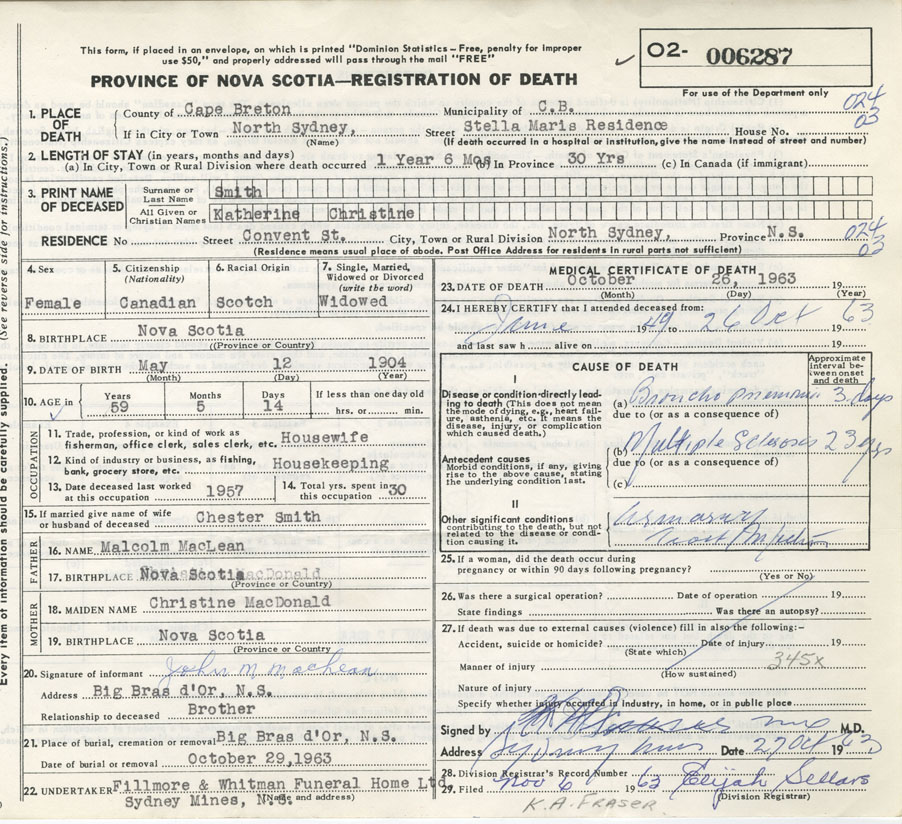 This form, if placed in an envelope, on which is printed "Dominion Statistics – Free, penalty for improper
use $50," and properly addressed will pass through the mail "FREE"
PROVINCE OF NOVA SCOTIA—REGISTRATION OF DEATH
O2- 006287
For use of the Department only
1. PLACE OF DEATH
County of Cape Breton Municipality of C.B. 024
If in City or Town North Sydney, Street Stella Maris Residence House No. 03
(Name) (If death occurred in a hospital or institution, give the name instead of street and number)
2. LENGTH OF STAY (in years, months and days)
(a) In City, Town or Rural Division where death occurred 1 Year 6 Mos (b) In Province 30 Yrs (c) In Canada (if immigrant)
3. PRINT NAME OF DECEASED
Surname or Last Name Smith
All Given or Christian Names Katherine Christine
RESIDENCE No Street Convent St. City, Town or Rural Division North Sydney, Province N.S. 024 03
(Residence means usual place of abode. Post Office Address for residents in rural parts not sufficient)
4. Sex Female
5. Citizenship (Nationality) Canadian
6. Racial Origin Scotch
7. Single, Married, Widowed or Divorced (write the word) Widowed
8. BIRTHPLACE Nova Scotia
((Province or Country)
9. DATE OF BIRTH May 12 1904
(Month) (Day) (Year)
10. AGE in Years 59 Months 5 Days 14 If less than one day old hrs. or min.
OCCUPATION
11. Trade, profession, or kind of work as fisherman, office clerk, sales clerk, etc. Housewife
12. Kind of industry or business, as fishing, bank, grocery store, etc. Housekeeping
13. Date deceased last worked at this occupation 1957
14. Total yrs. spent in this occupation 30
15. If married give name of wife or husband of deceased Chester Smith
FATHER
16. NAME Malcolm MacLean
17. BIRTHPLACE Nova Scotia
(Province or Country)
MOTHER
18. MAIDEN NAME Christine MacDonald
19. BIRTHPLACE Nova Scotia
(Province or Country
20. Signature of informant John M Maclean
Address Big Bras d'Or, N.S.
Relationship to deceased Brother
21. Place of burial, cremation or removal Big Bras d'Or, N.S.
Date of burial or removal October 29,1963
22. UNDERTAKER Fillmore & Whitman Funeral Home Ltd
Sydney Mines, N.S.
(Name and address)
MEDICAL CERTIFICATE OF DEATH
23. DATE OF DEATH October 26, 1963 19
(Month) (Day) (Year)
24. I HEREBY CERTIFY that I attended deceased from:
June 1949 to 26 Oct 63
and last saw h alive on 19
CAUSE OF DEATH
Approximate interval between onset and death
I
Disease or condition directly leading to death (This does not mean the mode of dying, e.g., heart failure, asthenia, etc. It means the disease, injury, or complication which caused death.)
(a) Broncho pneumonia 3 days
due to (or as a consequence of)
Antecedent causes
Morbid conditions, if any, giving rise to the above cause, stating the underlying condition last.
(b) Multiple Sclerosis 23 yrs
due to (or as a consequence of)
(c)
II
Other significant conditions contributing to the death, but not related to the disease or condition causing it.
25. If a woman, did the death occur during
pregnancy or within 90 days following pregnancy?
(Yes or No)
26. Was there a surgical operation? Date of operation 19
State findings Was there an autopsy?
27. If death was due to external causes (violence) fill in also the following:–
Accident, suicide or homicide? Date of injury 19
(State which)
Manner of injury 345x
(How sustained)
Nature of injury
Specify whether injury occurred in Industry, in home, or in public place
Signed by M.D.
Address Sydney Mines Date 27 Oct 1963
28. Division Registrar's Record Number
29. Filed Nov 6 1963 Elijah Sellars
(Division Registrar)
K.A. FRASER
Every item of information should be carefully supplied. (See reverse side for instructions.)